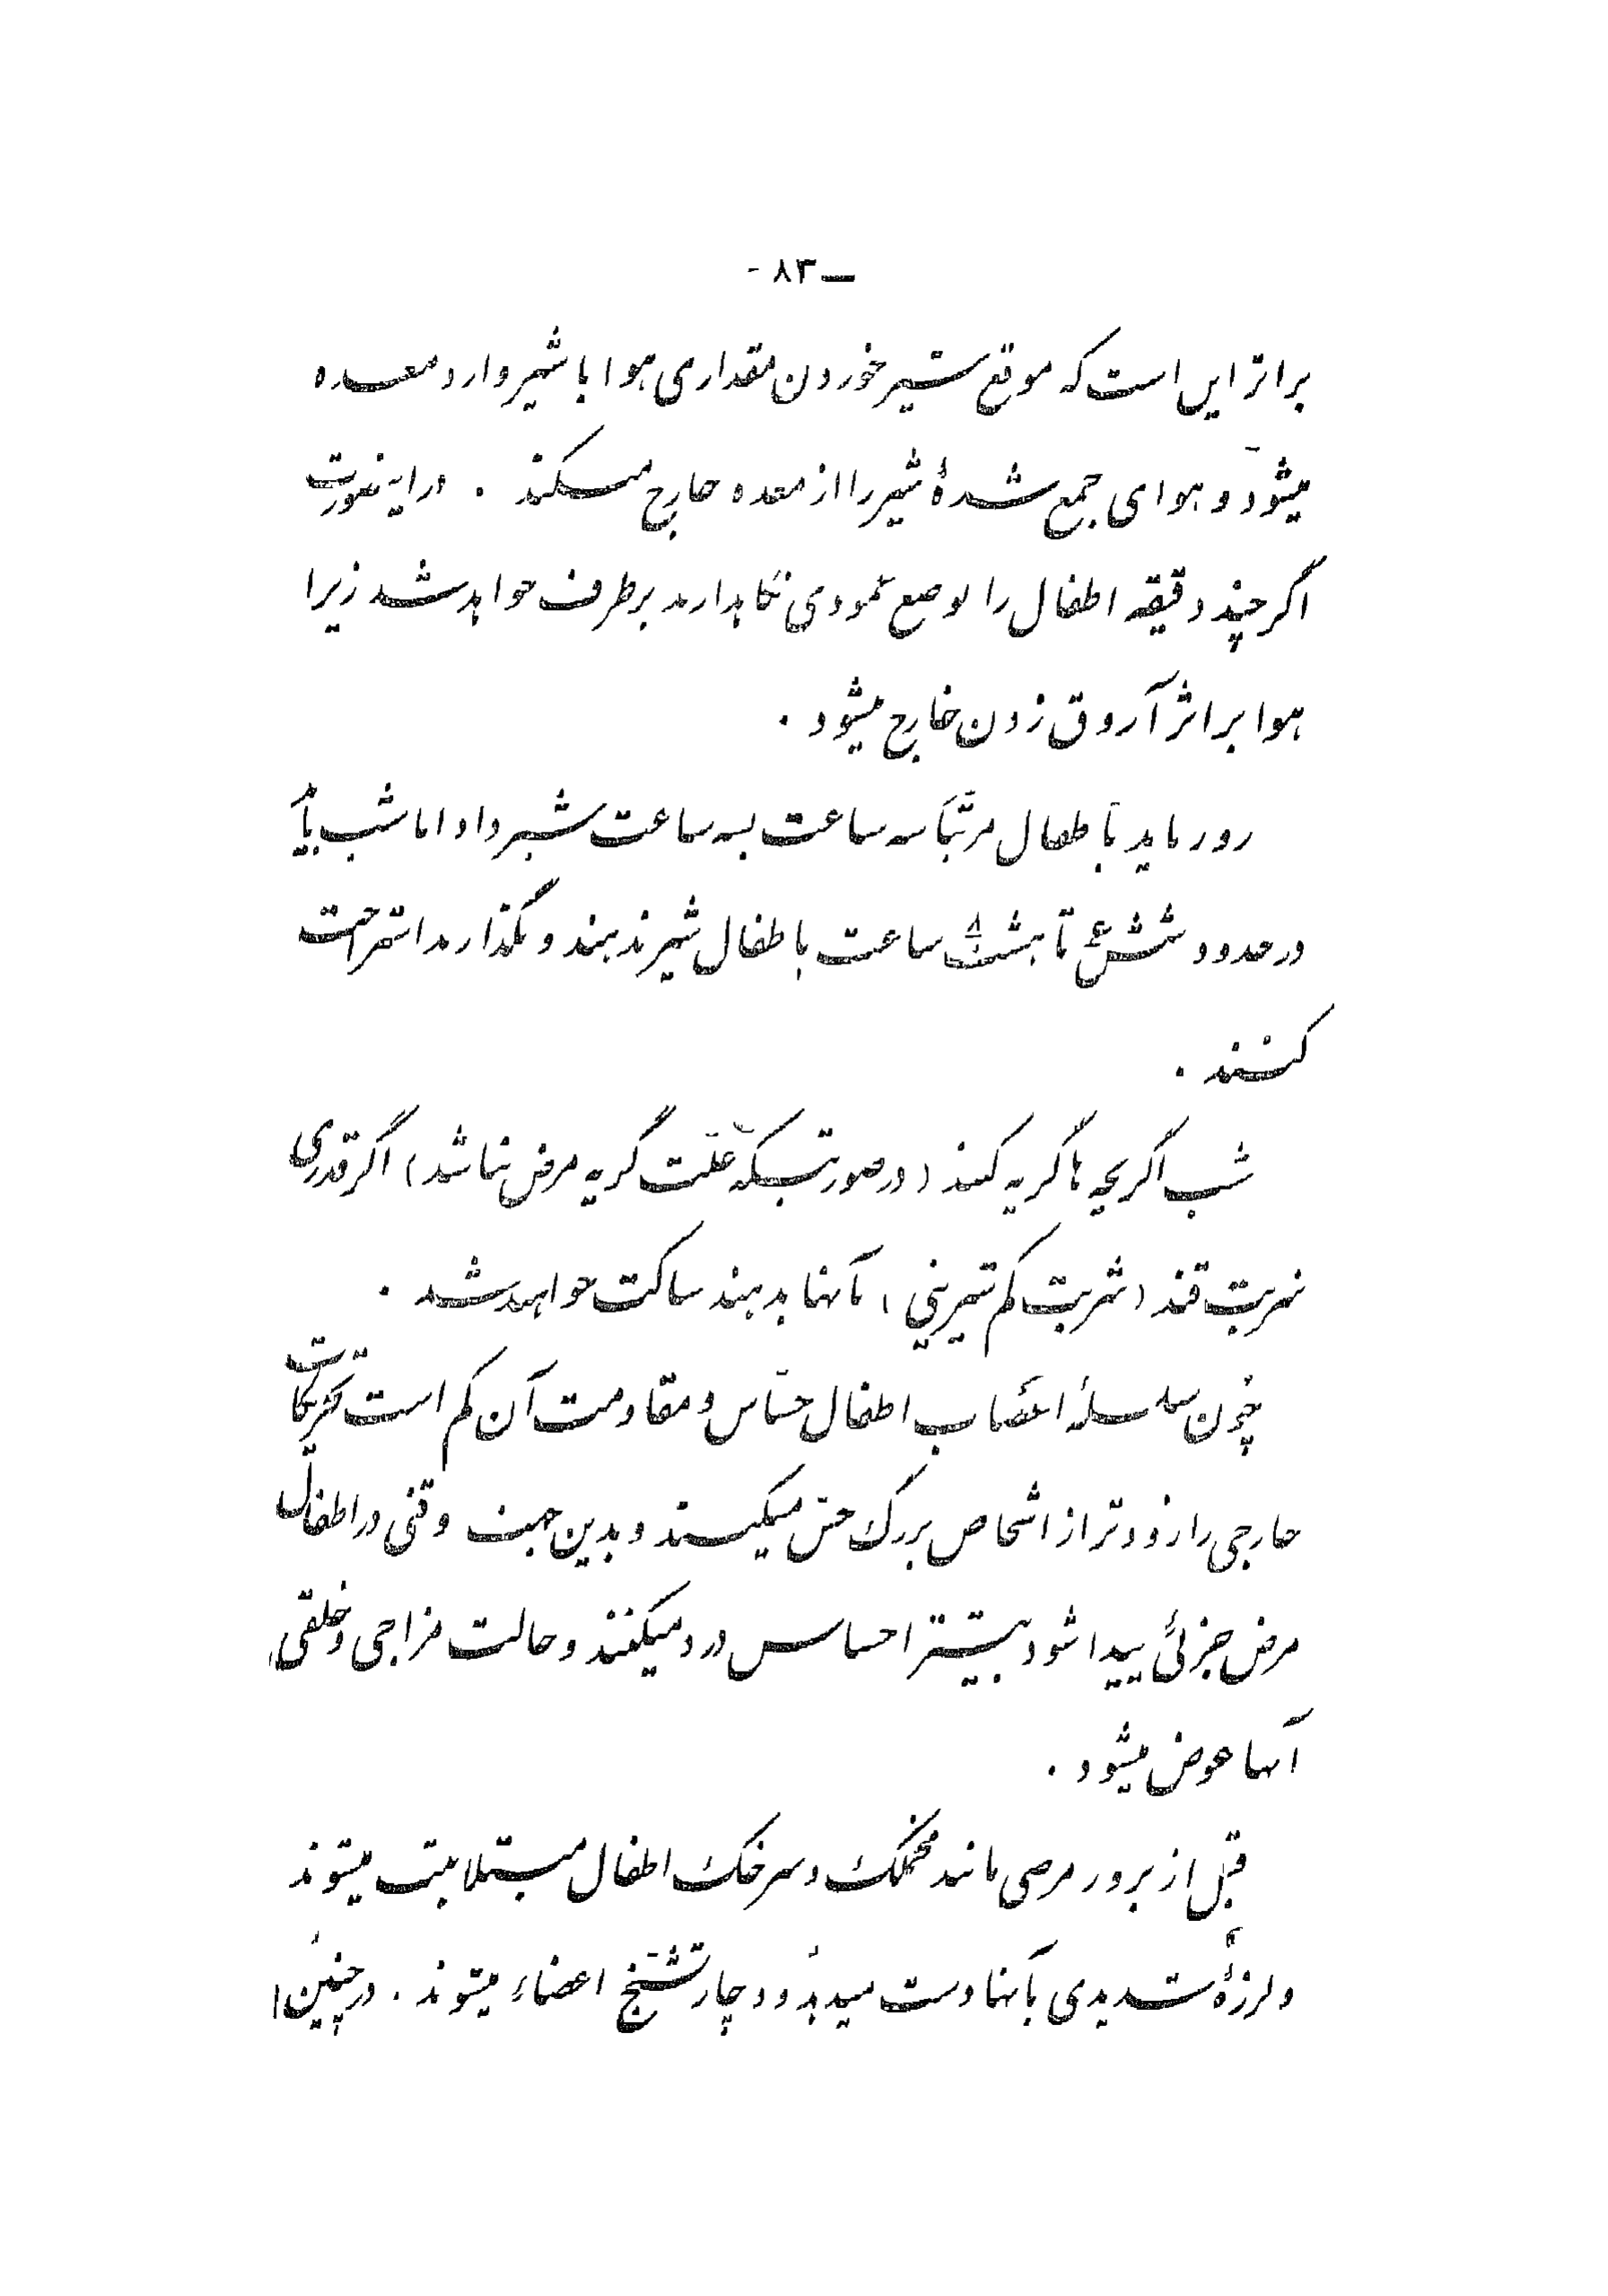 ـ ۸۳ -
براثر این است که موقع شیر خوردن مقداری هوا با شیر وارد معده
میشود و هوای جمع شدهٔ شیر را از معده خارج میکند . در اینصورت
اگر چند دقیقه اطفال را بوضع عمودی نگاهدارند برطرف خواهد شد زیرا
هوا براثر آروق زدن خارج میشود .
روز باید باطفال مرتباً سه ساعت بسه ساعت شیر داد اما شب باید
در حدود شش ۶ تا هشت ۸ ساعت باطفال شیر ندهند و بگذارند استراحت
کنند .
شب اگر بچه ها گریه کنند (در صورتیکه علّت گریه مرض نباشد) اگر قدری
شربت قند (شربت کم شیرینی) بآنها بدهند ساکت خواهند شد .
چون سلسلهٔ اعصاب اطفال حسّاس و مقاومت آن کم است تحریکات
خارجی را زودتر از اشخاص بزرگ حسّ میکنند و بدین جهت وقتی در اطفال
مرض جزئی پیدا شود بیشتر احساس درد میکنند و حالت مزاجی و خلقی
آنها عوض میشود .
قبل از بروز مرضی مانند مخملک و سرخک اطفال مبتلا بتب میشوند
و لرزهٔ شدیدی بآنها دست میدهد و دچار تشنّج اعضاء میشوند . در چنین